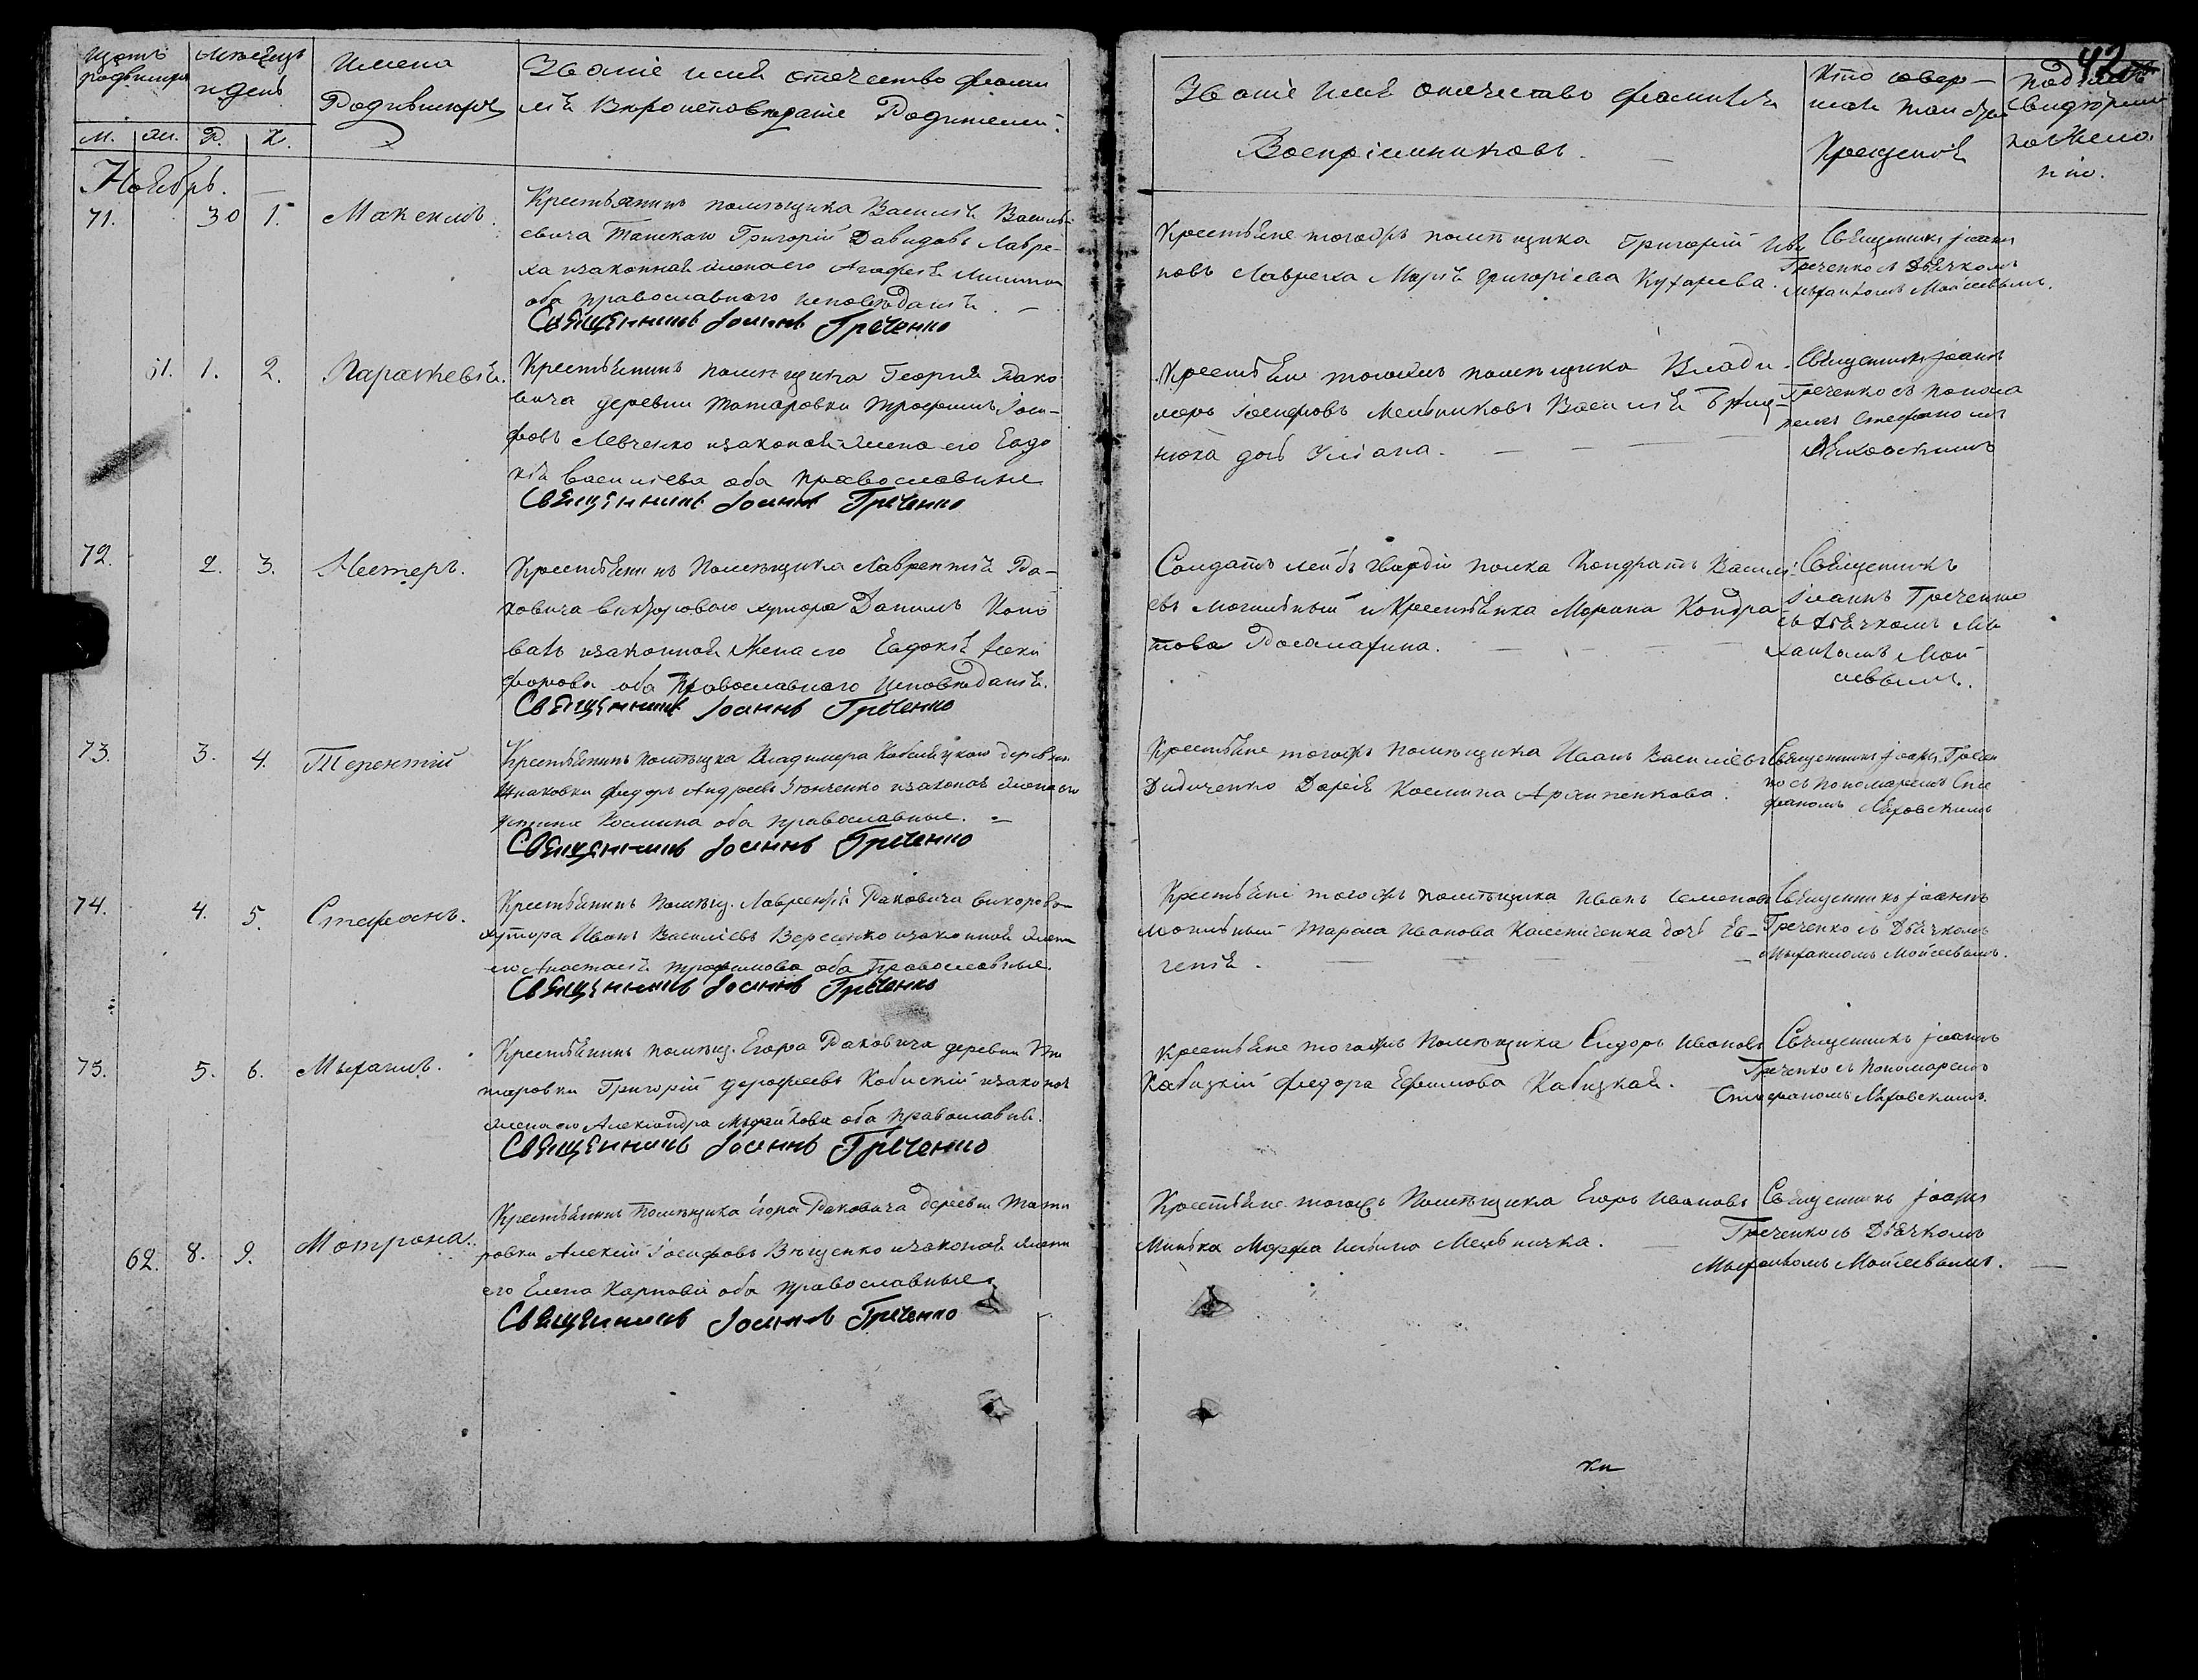 42
Щетъ родившихся
Мѣсяцъ и день
Имена Родившихся
Званіе имя отечество фами
лія Вѣроисповѣданіе Родителей.
Званіе Имя отечество фамилія
Воспріемниковъ.
Кто совер-
шалъ таинство
Крещенія
м. ж. Р. К.
Ноябрь.
71. 30 1. Максимъ.
Крестьянинъ помѣщика Василія Василі
евича Танскаго Григорій Давидовъ Лавре-
ха изаконная жена его Агафія
оба православнаго исповѣданія.
Священникъ Іоаннъ Греченко
Крестьяне тогожъ помѣщика Григорій Ива
новъ Лавреха Марія Григоріева Кухарева.
Священникъ Іоаннъ
Греченко съ Дьячкомъ
Михаиломъ Моисеевымъ.
61. 1. 2. Параскевія.
Крестьянинъ помѣщика Георгія Рако
вича деревни Татаровки Трофимъ Іоси-
фовъ Левченко изаконая жена его Евдо
кія Василіева оба православные
Священникъ Іоаннъ Греченко
Крестьяне тогожъ помѣщика Влади
меръ Іосифовъ Мельниковъ Василія
дочь Уліана.
Священникъ Іоаннъ
Греченко съ понома
ремъ Стефаномъ
Ляховскимъ
72. 2. 3. Нестеръ.
Крестьянинъ Помѣщика Лаврентія Ра-
ковича хутора Данилъ Коно
валъ изаконной Жена его Евдокія Ники
форова оба Православнаго Исповѣданія.
Священникъ Іоаннъ Греченко
Солдатъ лейбъ Гвардіи полка Кондратъ Василі
евъ Могильный и Крестьянка Марина Кондра
това
Священникъ
Іоаннъ Греченко
съ Дьячкомъ Ми
хаиломъ Мои
сеевымъ.
73. 3. 4. Терентій
Крестьянинъ помѣщика Владимера деревни
Шпаковки Федоръ Андреевъ изаконая жена его
Космина оба православные.
Священникъ Іоаннъ Греченко
Крестьяне тогожъ помѣщика Иванъ Василіевъ
Дидиченко Дарія Космина
Священникъ Іоаннъ Гречен
ко съ пономаремъ Сте
фаномъ Ляховскимъ
74. 4. 5. Стефанъ.
Крестьянинъ помѣщ. Лаврентія Раковича
хутора Иванъ Василіевъ изаконной жена
его Анастасія Трофимова оба Православные.
Священникъ Іоаннъ Греченко
Крестьяне тогожъ помѣщика Иванъ Семеновъ
Могильный Тараса Иванова дочь Ев-
генія.
Священникъ Іоаннъ
Греченко съ Дьячкомъ
Михаиломъ Моисеевымъ.
75. 5. 6. Михаилъ.
Крестьянинъ помѣщ. Егора Раковича деревни Та
таровки Григорій изаконая
жена его Александра Михайлова оба православные.
Священникъ Іоаннъ Греченко
Крестьяне тогожъ Помѣщика Сидоръ Ивановъ
Кабицкій Федора Ефимова Кабицкая.
Священникъ Іоаннъ
Греченко съ Пономаремъ
Стефаномъ Ляховскимъ.
62. 8. 9. Мотрона.
Крестьянинъ Помѣщика Егора Раковича деревни Тата
ровки Алексій Іосифовъ изаконая жена
его Елена Карпова оба православные
Священникъ Іоаннъ Греченко
Крестьяне тогожъ Помѣщика Егоръ Ивановъ
Минька Марфа Мельничка.
Священникъ Іоаннъ
Греченко съ Дьячкомъ
Михаиломъ Моисеевымъ.